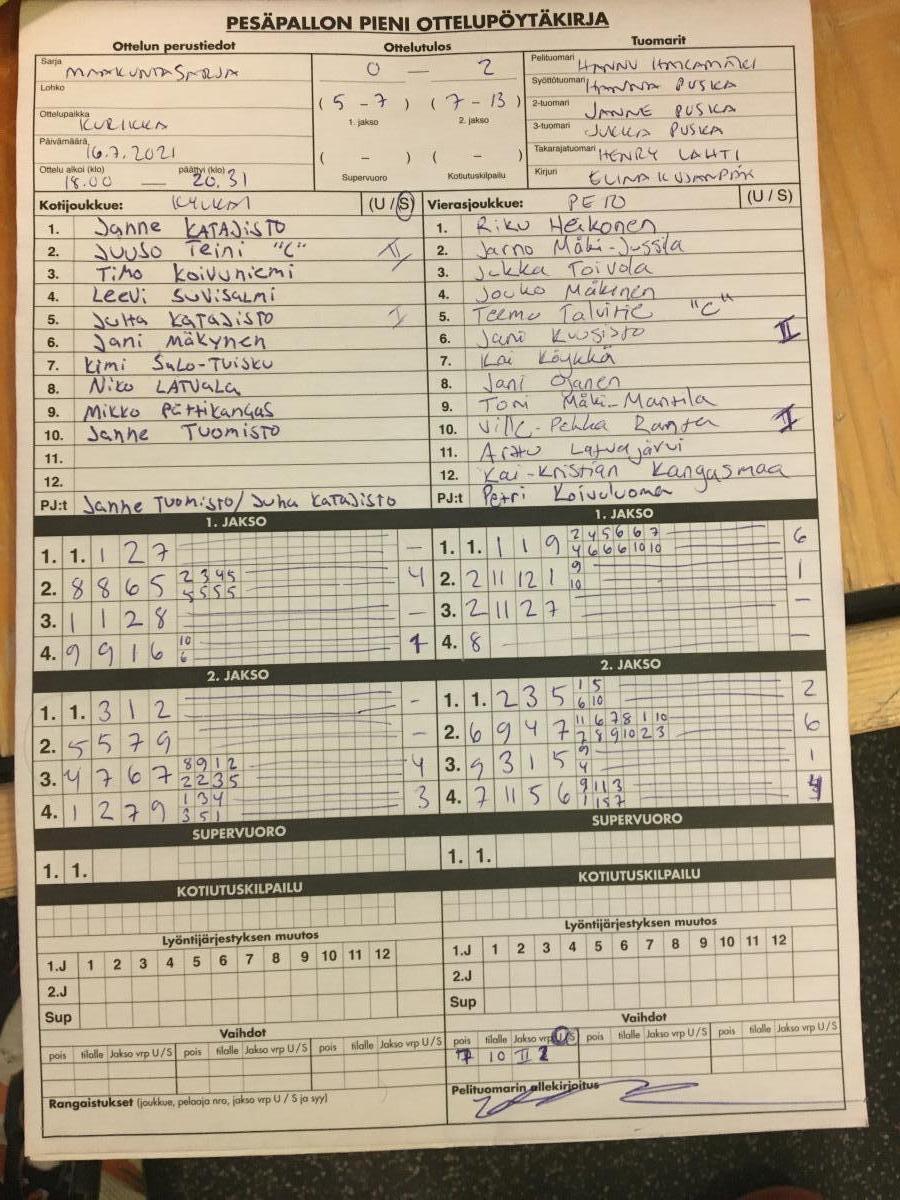 PESÄPALLON PIENI OTTELUPÖYTÄKIRJA
Ottelun perustiedot
Sarja
MAAKUNTASARJA
Lohko
Ottelupaikka
KURIKKA
Päivämäärä
16.7.2021
Ottelu alkoi (klo) päättyi (klo)
18.00 — 20.31
Ottelutulos
0 — 2
(5 - 7) (7 - 13)
1. jakso 2. jakso
( - ) ( - )
Supervuoro Kotiutuskilpailu
Tuomarit
Pelituomari HANNU
Syöttötuomari HANNA PUSKA
2-tuomari JANNE PUSKA
3-tuomari JUKKA PUSKA
Takarajatuomari HENRY LAHTI
Kirjuri ELINA
Kotijoukkue: (U / S)
1. Janne KATAJISTO
2. JUUSO Teini "C" II
3. TIMO KOIVUNIEMI
4. Leevi SUVISALMI
5. JUHA KATAJISTO I
6. Jani MÄKYNEN
7. Kimi SALO-TUISKU
8. Niko LATVALA
9. Mikko Pättikangas
10. Janne TUOMISTO
11.
12.
PJ:t Janne TUOMISTO/JUHA KATAJISTO
Vierasjoukkue: (U / S)
1. Riku Heikonen
2. Jarno Mäki-Jussila
3. Jukka Toivola
4. Jouko Mäkinen
5. Teemu Talvitie "C"
6. Jani Kuusisto II
7. Kai Köykkä
8. Jani Ojanen
9. Toni Mäki-Mantila
10. Ville-Pekka Ranta I
11. Arttu Latvajärvi
12. Kai-Kristian Kangasmaa
PJ:t Petri Koivuluoma
1. JAKSO
1. 1. 1 2 7 —
2. 8 8 6 5 2 3 4 5 4
5 5 5 5
3. 1 1 2 8 —
4. 9 9 1 6 10 1
6
2. JAKSO
1. 1. 3 1 2 -
2. 5 5 7 9 -
3. 4 7 6 7 8 9 1 2 4
2 2 3 5
4. 1 2 7 9 1 3 4 3
3 5 1
SUPERVUORO
1. 1.
KOTIUTUSKILPAILU
Lyöntijärjestyksen muutos
1.J 1 2 3 4 5 6 7 8 9 10 11 12
2.J
Sup
Vaihdot
pois tilalle Jakso vrp U / S pois tilalle Jakso vrp U / S pois tilalle Jakso vrp U / S
Rangaistukset (joukkue, pelaaja nro, jakso vrp U / S ja syy)
1. JAKSO
1. 1. 1 1 9 2 4 5 6 6 7 6
4 6 6 6 10 10
2. 2 11 12 1 9 1
10
3. 2 11 2 7 —
4. 8 —
2. JAKSO
1. 1. 2 3 5 1 5 2
6 10
2. 6 9 4 7 11 6 7 8 1 10 6
7 8 9 10 2 3
3. 9 3 1 5 9 1
4
4. 7 11 5 6 9 11 1 3 4
1 1 5 7
SUPERVUORO
1. 1.
KOTIUTUSKILPAILU
Lyöntijärjestyksen muutos
1.J 1 2 3 4 5 6 7 8 9 10 11 12
2.J
Sup
Vaihdot
pois tilalle Jakso vrp U/S pois tilalle Jakso vrp U / S pois tilalle Jakso vrp U / S
7 10 II 2
Pelituomarin allekirjoitus